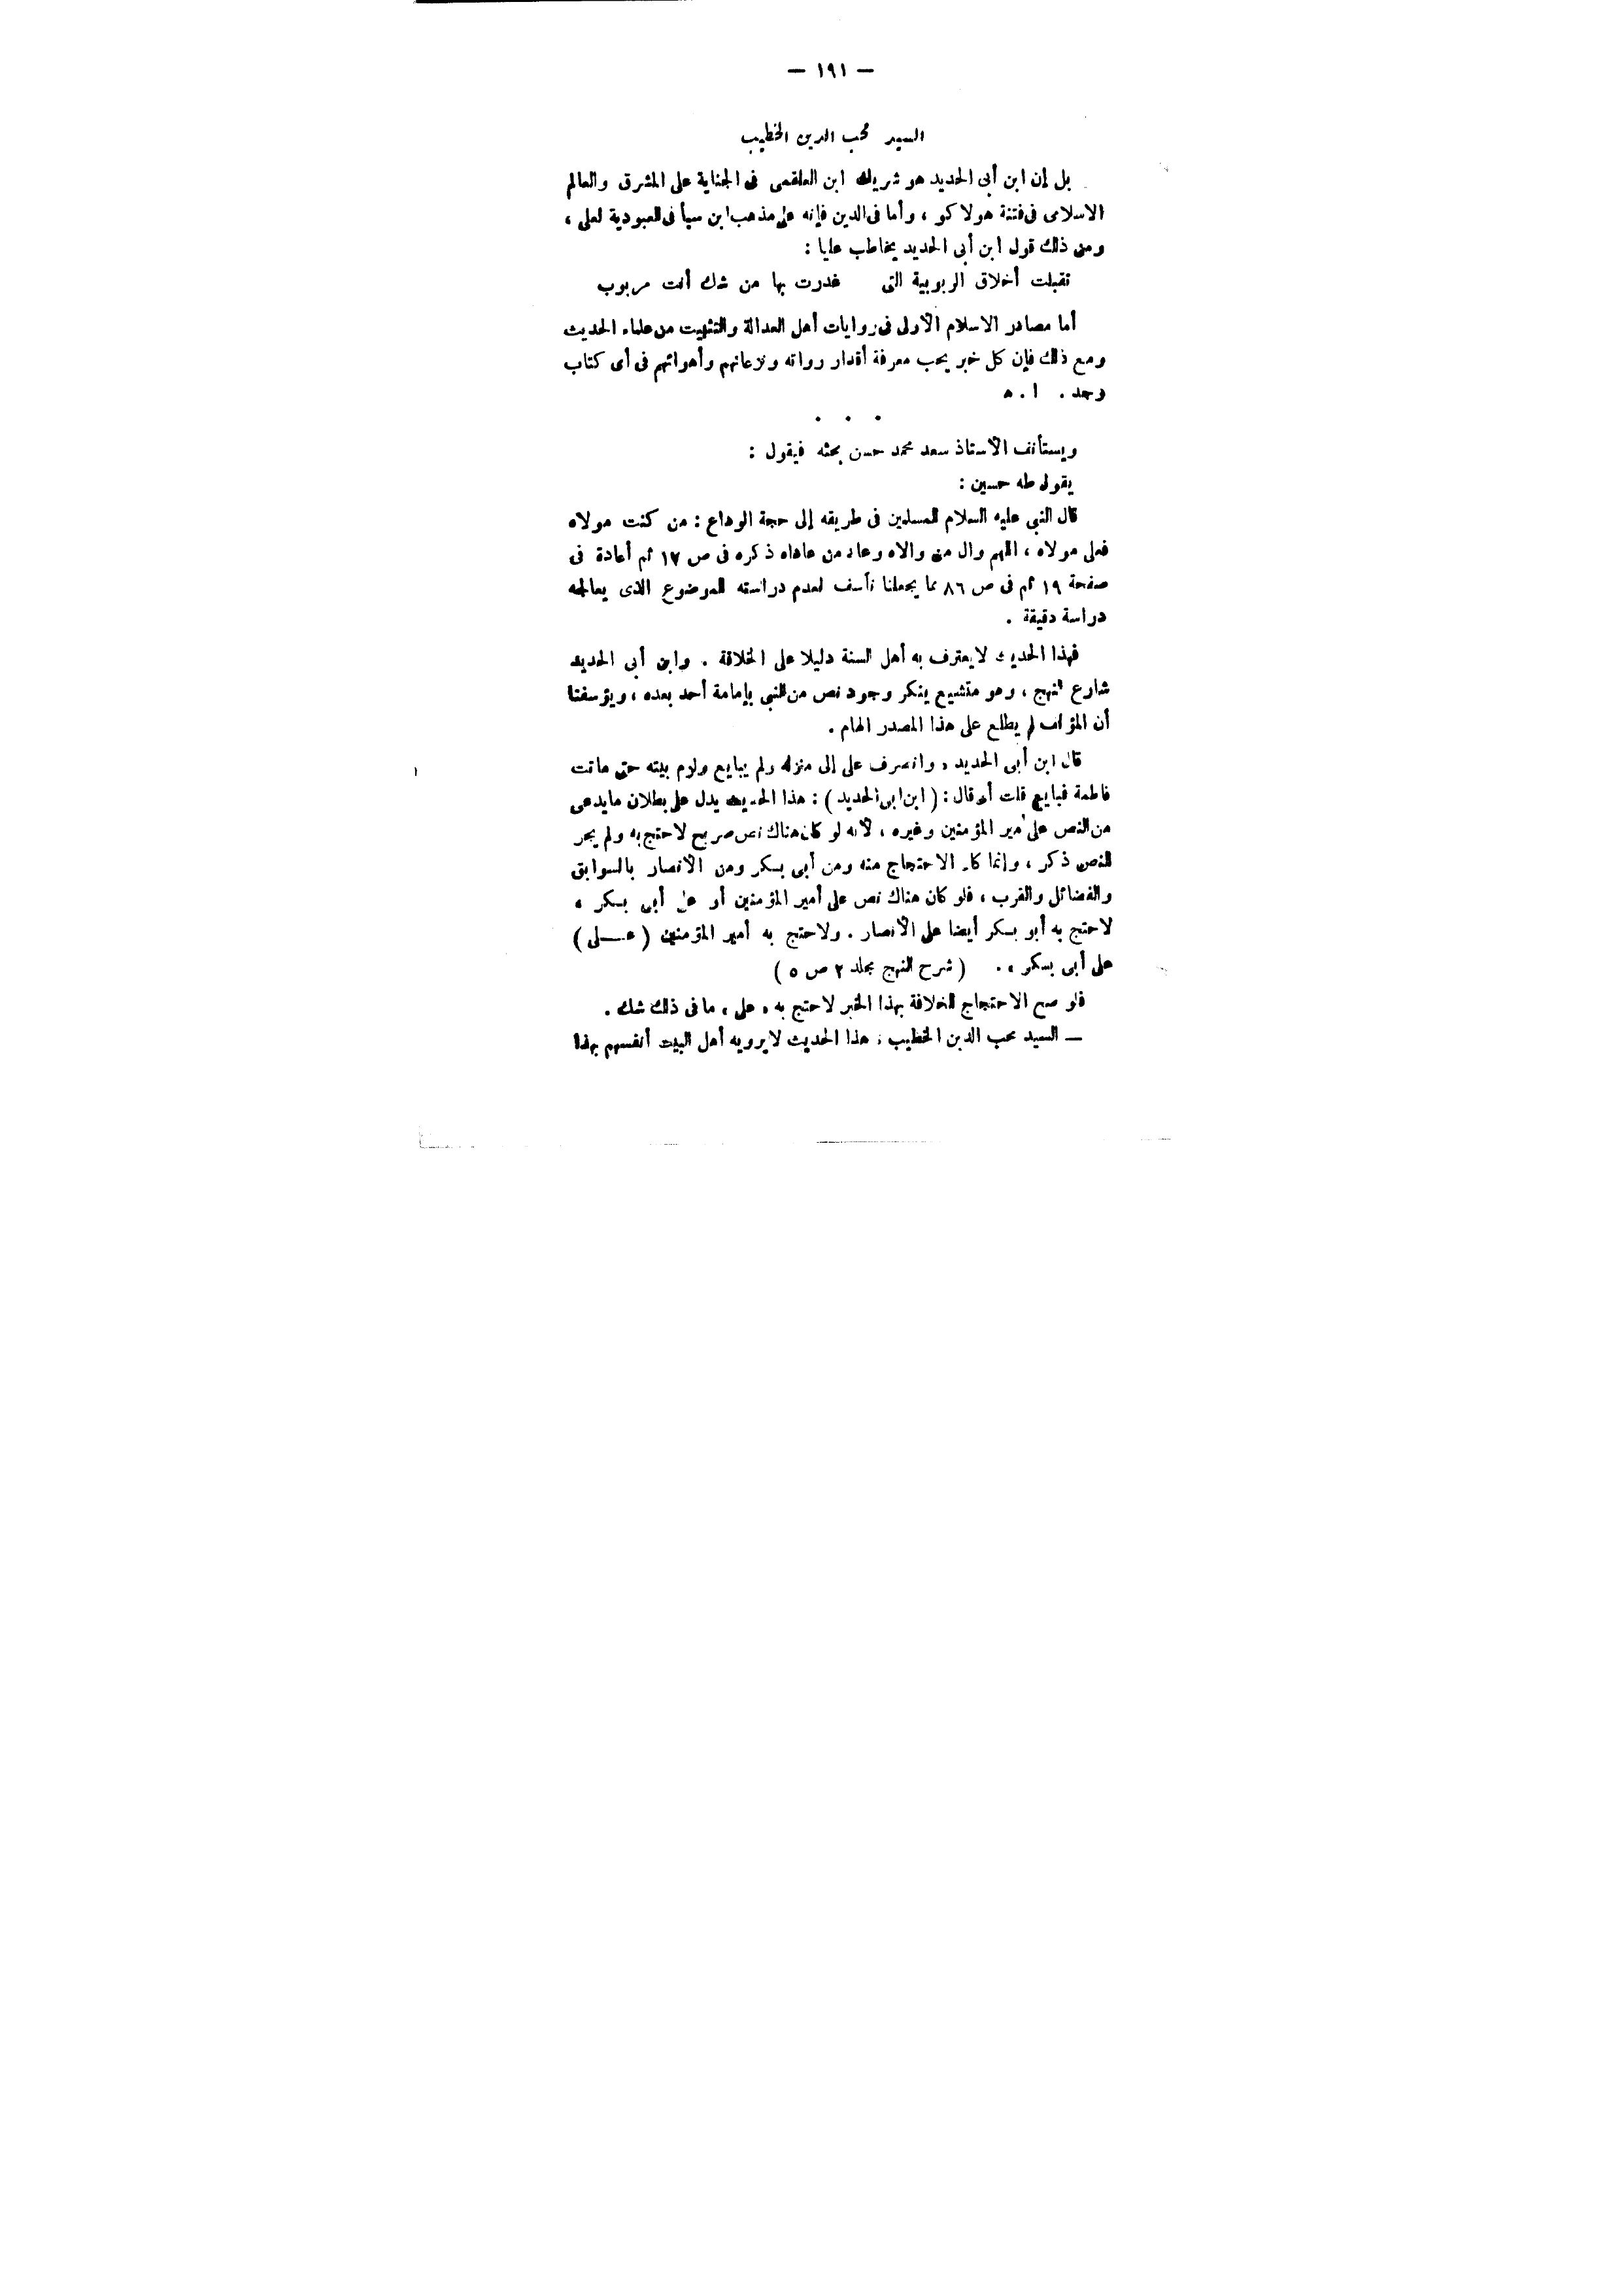 — ١٩١ —
السيد محب الدين الخطيب
بل إن ابن أبى الحديد هو شريك ابن العلقمى فى الجناية على المشرق والعالم
الاسلامى فى فتنة هولاكو ، وأما فى الدين فإنه على مذهب ابن سبأ فى العبودية لعلى ،
ومن ذلك قول ابن أبى الحديد يخاطب عليا :
تقبلت أخلاق الربوبية التى غدرت بها من شك أنت مربوب
أما مصادر الاسلام الأولى فى روايات أهل العدالة والتثبيت من علماء الحديث
ومع ذلك فإن كل خبر يجب معرفة أقدار رواته ونزعاتهم وأهوائهم فى أى كتاب
وجد . ا . ه
. . .
ويستأنف الأستاذ سعد محمد حسن بحثه فيقول :
يقول طه حسين :
قال النبى عليه السلام للمسلمين فى طريقه إلى حجة الوداع : من كنت مولاه
فعلى مولاه ، اللهم وال من والاه وعاد من عاداه ذكره فى ص ١٧ ثم أعادة فى
صفحة ١٩ ثم فى ص ٨٦ مما يجعلنا نأسف لعدم دراسته للموضوع الذى يعالجه
دراسة دقيقة .
فهذا الحديث لا يعترف به أهل السنة دليلا على الخلافة . وابن أبى الحديد
شارع النهج ، وهو متشيع ينكر وجود نص من النبى بإمامة أحد بعده ، ويؤسفنا
أن المؤلف لم يطلع على هذا المصدر الهام .
قال ابن أبى الحديد , وانصرف على إلى منزله ولم يبايع ولزم بيته حتى ماتت
فاطمة فبايع قلت أى قال : ( ابن ابى الحديد ) : هذا الحديث يدل على بطلان ما يدعى
من النص على أمير المؤمنين وغيره ، لأنه لو كان هناك نص صريح لاحتج به ولم يجر
للنص ذكر ، وإنما كان الاحتجاج منه ومن أبى بكر ومن الأنصار بالسوابق
والفضائل والقرب ، فلو كان هناك نص على أمير المؤمنين أو على أبى بكر ،
لاحتج به أبو بكر أيضا على الأنصار . ولاحتج به أمير المؤمنين ( عــلى )
على أبى بكر ، . ( شرح النهج مجلد ٢ ص ٥ )
فلو صح الاحتجاج للخلافة بهذا الخبر لاحتج به , على ، ما فى ذلك شك .
— السيد محب الدين الخطيب : هذا الحديث لا يرويه أهل البيت أنفسهم بهذا